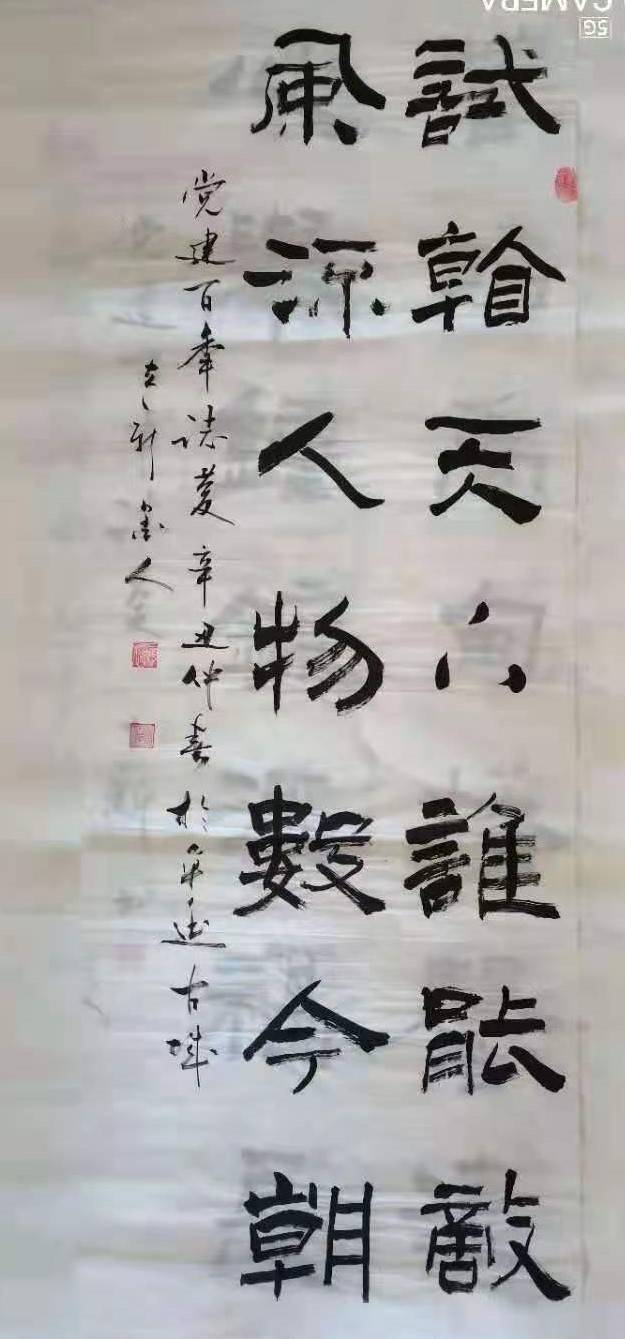 試看天下誰能敵
風流人物數今朝
党建百年誌慶辛丑仲春於平遥古城
人
5G
CAMERA